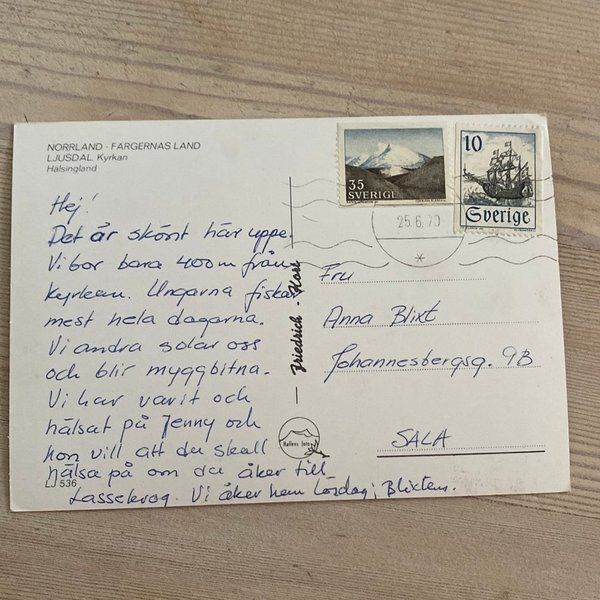 NORRLAND · FÄRGERNAS LAND
LJUSDAL, Kyrkan
Hälsingland
Hej!
Det är skönt här uppe.
Vi bor bara 400m från
kyrkan. Ungarna fiskar
mest hela dagarna.
Vi andra solar oss
och blir myggbitna.
Vi har varit och
hälsat på Jenny och
hon vill att du skall
hälsa på om du åker till
Lassekrog. Vi åker hem lördag; Blixtens.
LJ 536
Friedrich - Kort
Hallens foto
35
SVERIGE
10
Sverige
25.6.70
Fru
Anna Blixt
Johannesbergsg. 9B
SALA